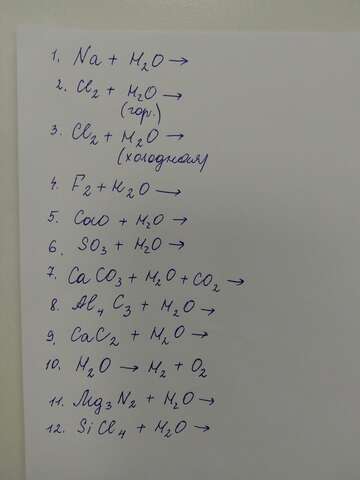 1. Na + H₂O →
2. Cl₂ + H₂O →
(гор.)
3. Cl₂ + H₂O →
(холодная)
4. F₂ + H₂O →
5. CaO + H₂O →
6. SO₃ + H₂O →
7. CaCO₃ + H₂O + CO₂ →
8. Al₄C₃ + H₂O →
9. CaC₂ + H₂O →
10. H₂O → H₂ + O₂
11. Mg₃N₂ + H₂O →
12. SiCl₄ + H₂O →